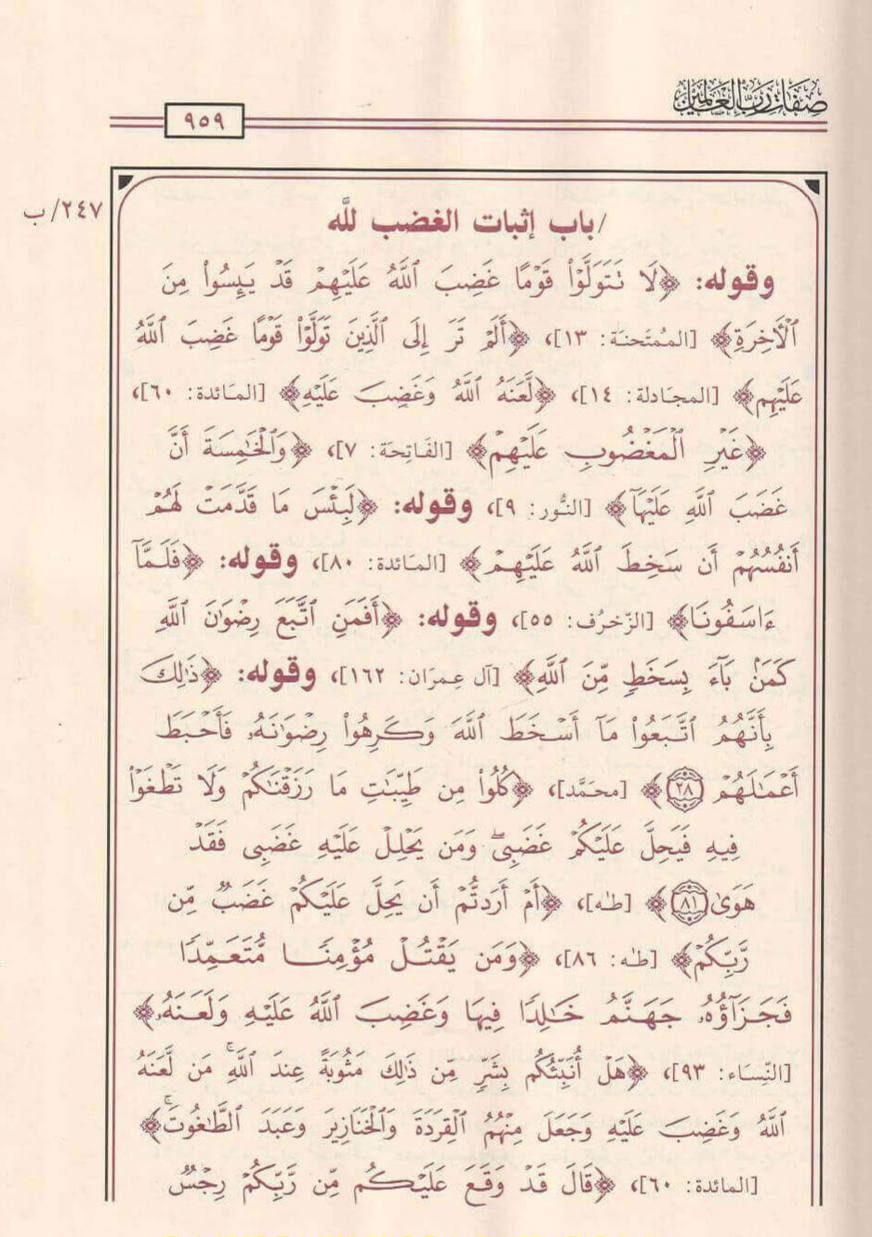 صفات رب العالمين
٩٥٩
٢٤٧/ب
/باب إثبات الغضب لله
وقوله: ﴿لَا تَتَوَلَّوْا۟ قَوْمًا غَضِبَ ٱللَّهُ عَلَيْهِمْ قَدْ يَئِسُوا۟ مِنَ
ٱلْأَخِرَةِ﴾ [الممُتَحنَة: ١٣]، ﴿أَلَمْ تَرَ إِلَى ٱلَّذِينَ تَوَلَّوْا۟ قَوْمًا غَضِبَ ٱللَّهُ
عَلَيْهِم﴾ [المجَادلة: ١٤]، ﴿لَّعَنَهُ ٱللَّهُ وَغَضِبَ عَلَيْهِ﴾ [المَائدة: ٦٠]،
﴿غَيْرِ ٱلْمَغْضُوبِ عَلَيْهِمْ﴾ [الفَاتِحَة: ٧]، ﴿وَٱلْخَٰمِسَةَ أَنَّ
غَضَبَ ٱللَّهِ عَلَيْهَآ﴾ [النُّور: ٩]، وقوله: ﴿لَبِئْسَ مَا قَدَّمَتْ لَهُمْ
أَنفُسُهُمْ أَن سَخِطَ ٱللَّهُ عَلَيْهِمْ﴾ [المَائدة: ٨٠]، وقوله: ﴿فَلَمَّآ
ءَاسَفُونَا﴾ [الزّخرُف: ٥٥]، وقوله: ﴿أَفَمَنِ ٱتَّبَعَ رِضْوَٰنَ ٱللَّهِ
كَمَنۢ بَآءَ بِسَخَطٍ مِّنَ ٱللَّهِ﴾ [آل عِمرَان: ١٦٢]، وقوله: ﴿ذَٰلِكَ
بِأَنَّهُمُ ٱتَّبَعُوا۟ مَآ أَسْخَطَ ٱللَّهَ وَكَرِهُوا۟ رِضْوَٰنَهُۥ فَأَحْبَطَ
أَعْمَٰلَهُمْ ٢٨﴾ [محَمَّد]، ﴿كُلُوا۟ مِن طَيِّبَٰتِ مَا رَزَقْنَٰكُمْ وَلَا تَطْغَوْا۟
فِيهِ فَيَحِلَّ عَلَيْكُمْ غَضَبِىۖ وَمَن يَحْلِلْ عَلَيْهِ غَضَبِى فَقَدْ
هَوَىٰ ٨١﴾ [طـٰه]، ﴿أَمْ أَرَدتُّمْ أَن يَحِلَّ عَلَيْكُمْ غَضَبٌ مِّن
رَّبِّكُمْ﴾ [طـٰه: ٨٦]، ﴿وَمَن يَقْتُلْ مُؤْمِنًا مُّتَعَمِّدًا
فَجَزَآؤُهُۥ جَهَنَّمُ خَٰلِدًا فِيهَا وَغَضِبَ ٱللَّهُ عَلَيْهِ وَلَعَنَهُۥ﴾
[النِّسَاء: ٩٣]، ﴿هَلْ أُنَبِّئُكُم بِشَرٍّ مِّن ذَٰلِكَ مَثُوبَةً عِندَ ٱللَّهِۚ مَن لَّعَنَهُ
ٱللَّهُ وَغَضِبَ عَلَيْهِ وَجَعَلَ مِنْهُمُ ٱلْقِرَدَةَ وَٱلْخَنَازِيرَ وَعَبَدَ ٱلطَّٰغُوتَۚ﴾
[المائدة: ٦٠]، ﴿قَالَ قَدْ وَقَعَ عَلَيْكُم مِّن رَّبِّكُمْ رِجْسٌ